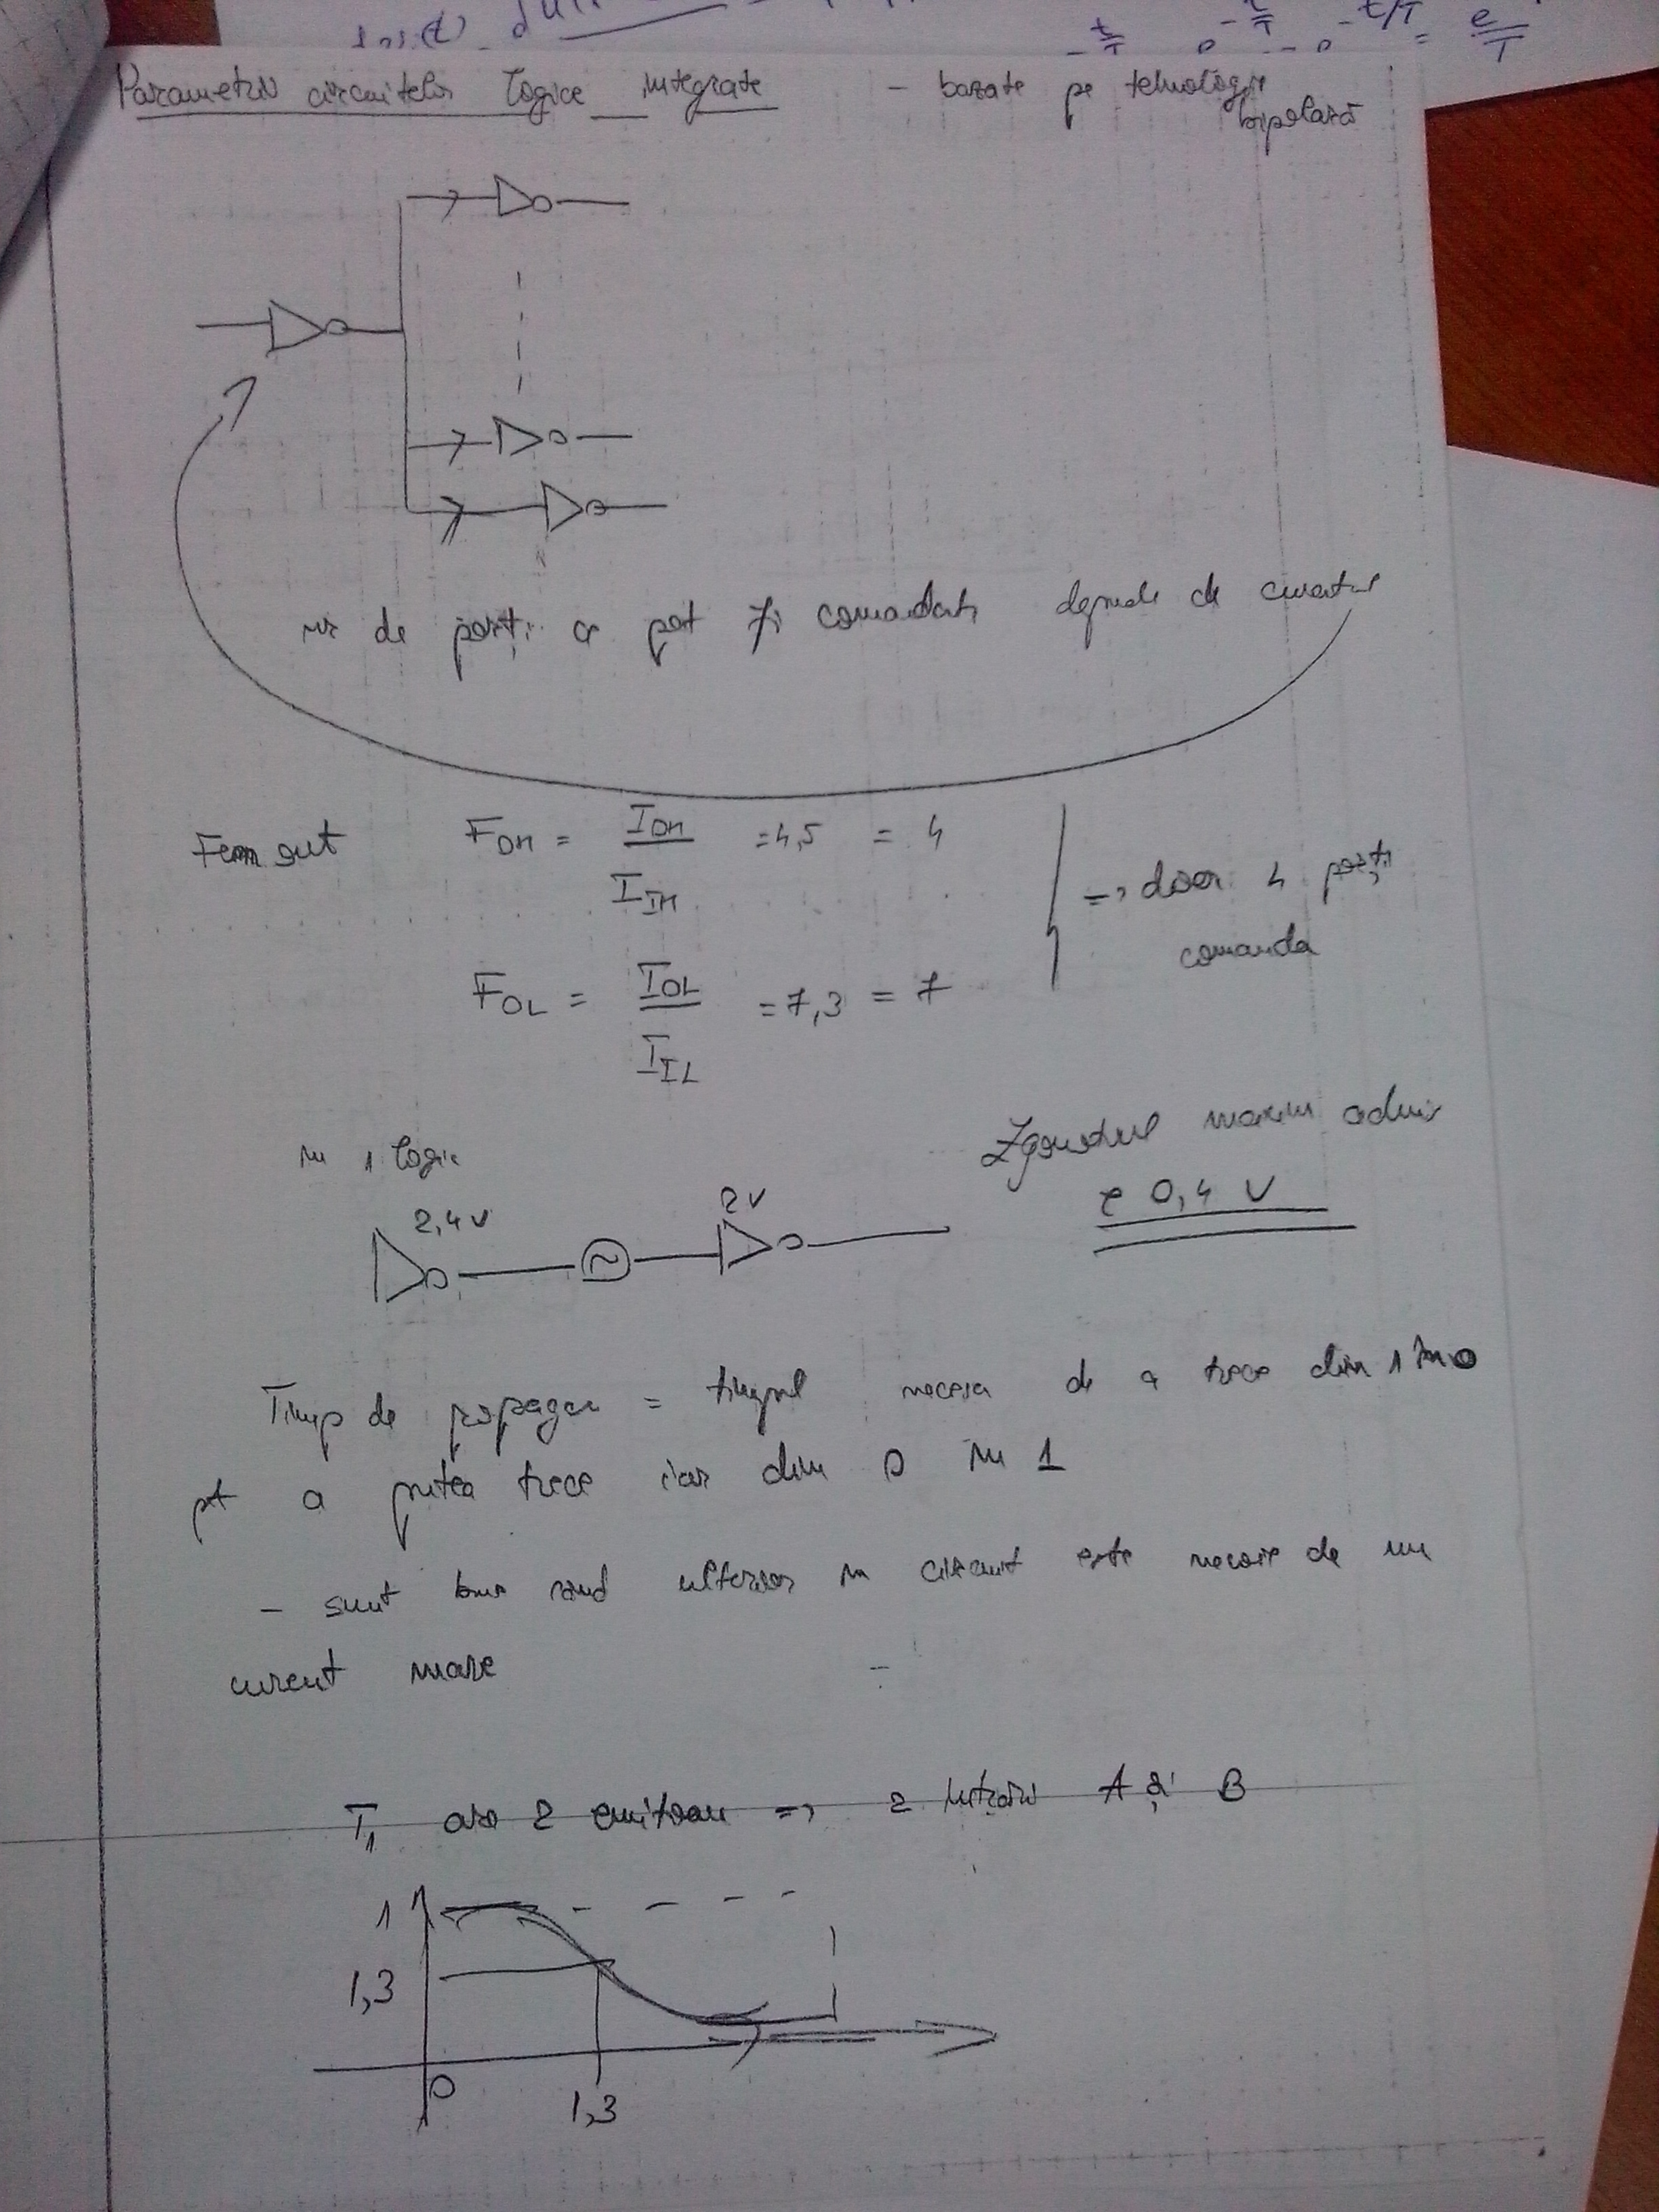 Parametrii circuitelor logice integrate - bazate pe tehnologie
bipolară
nr de porți ce pot fi comandate depinde de curentul
Fan out F_OH = I_OH / I_IH = 4,5 = 4
=> doar 4 porți
comanda
F_OL = I_OL / I_IL = 7,3 = 7
în 1 logic
Zgomotul maxim admis
e 0,4 V
2,4 V
2V
~
Timp de propagare = timpul necesar de a trece din 1 în 0
pt a putea trece iar din 0 în 1
- sunt bune când ulterior în circuit este nevoie de un
curent mare
T1 are 2 emitoare => 2 intrări A și B
1
1,3
0
1,3